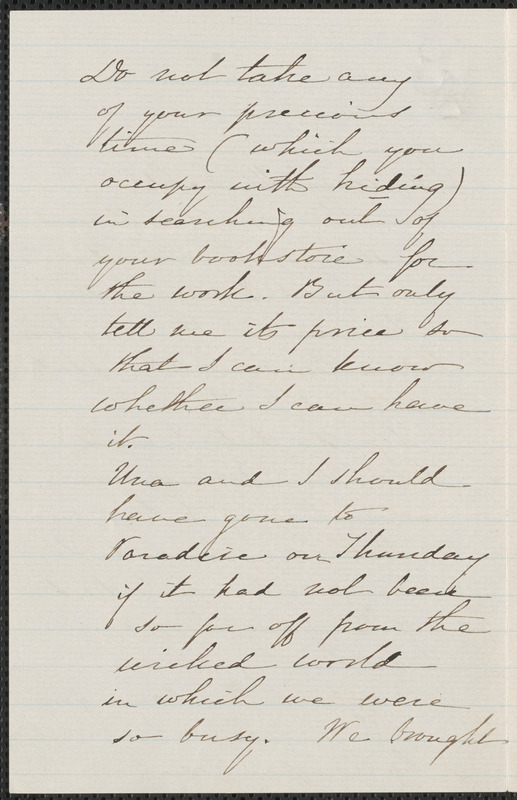 Do not take any
of your precious
time (which you
occupy with hiding)
in searching out of
your bookstore for
the work. But only
tell me its price so
that I can know
whether I can have
it.
Una and I should
have gone to
Paradise on Thursday
if it had not been
so far off from the
wicked world
in which we were
so busy. We brought